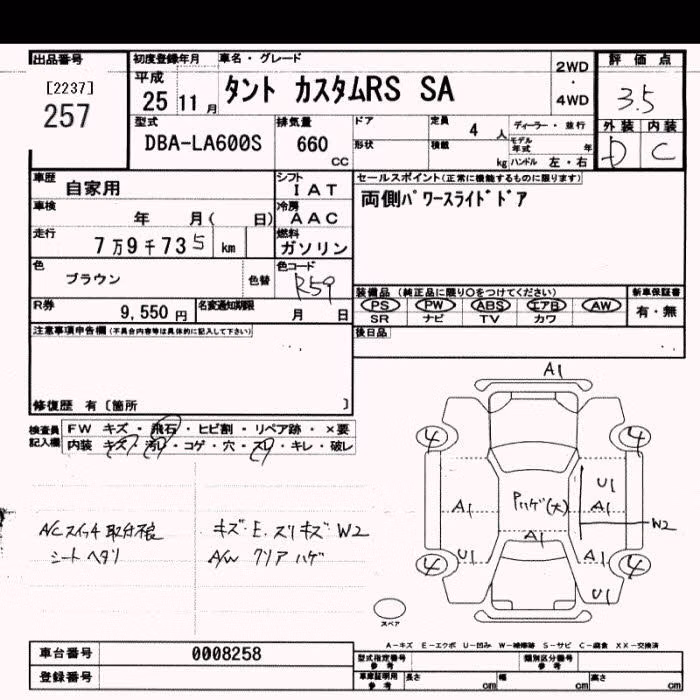 出品番号 初度登録年月 車名・グレード 2WD・4WD 評価点
[2237] 257 平成 25 11月 タント カスタムRS SA 3.5
型式 排気量 ドア 定員 4人 ディーラー・並行 外装 内装
DBA-LA600S 660 CC 形状 積載 kg モデル年式 年 ハンドル 左・右 D C
車歴 自家用 シフト IAT セールスポイント(正常に機能するものに限ります)
車検 年 月( 日) 冷房 AAC 両側パワースライドドア
走行 7万9千735 km 燃料 ガソリン
色 ブラウン 色替 色コード R59
装備品 (純正品に限り○をつけてください) 新車保証書
R券 9,550円 名変通知期限 月 日 PS PW ABS エアB AW 有・無
SR ナビ TV カワ
注意事項申告欄(不具合内容等は具体的に記入して下さい) 後日品
修復歴 有〔箇所 〕
検査員記入欄 FW キズ・飛石・ヒビ割・リペア跡・×要
内装 キズ・汚レ・コゲ・穴・スレ・キレ・破レ
A1
4 4
U1
A1 Pハゲ(大) A1
W2
A1
U1 A1
4 4
U1
A/Cスイッチ取付不良 キズ・E・スリキズ W2
シートヘタリ A/W クリアハゲ
スペア
A-キズ E-エクボ U-凹み W-補修跡 S-サビ C-腐食 XX-交換済
車台番号 0008258 型式指定番号 参考 類別区分番号 参考
登録番号 車庫証明用 参考 長さ cm 幅 cm 高さ cm